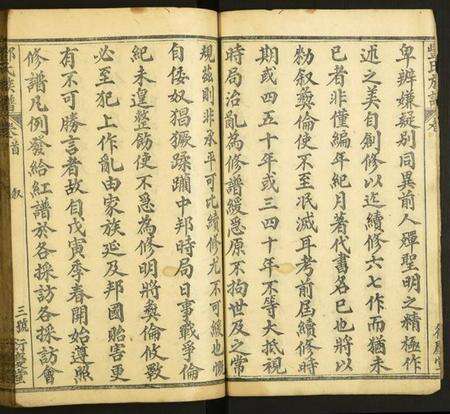 卑辨嫌疑別同異前人殫聖明之精極作
述之美自創修以迄續修六七作而猶未
已者非僅編年紀月著代書名已也將以
勑叙彝倫使不至泯滅耳考前屆續修時
期或四五十年或三四十年不等大抵視
時局治亂為修譜緩急原不拘世及之常
規茲則非承平可比續修尤不可緩也慨
自倭奴猖獗蹂躪中邦時局日事戰爭倫
紀未遑整飭使不急為修明將彝倫攸斁
必至犯上作亂由家族延及邦國貽害更
有不可勝言者故自戊寅季春開始遵照
修譜凡例發給紅譜於各採訪各採訪會
氏族譜 卷首 叙 三號